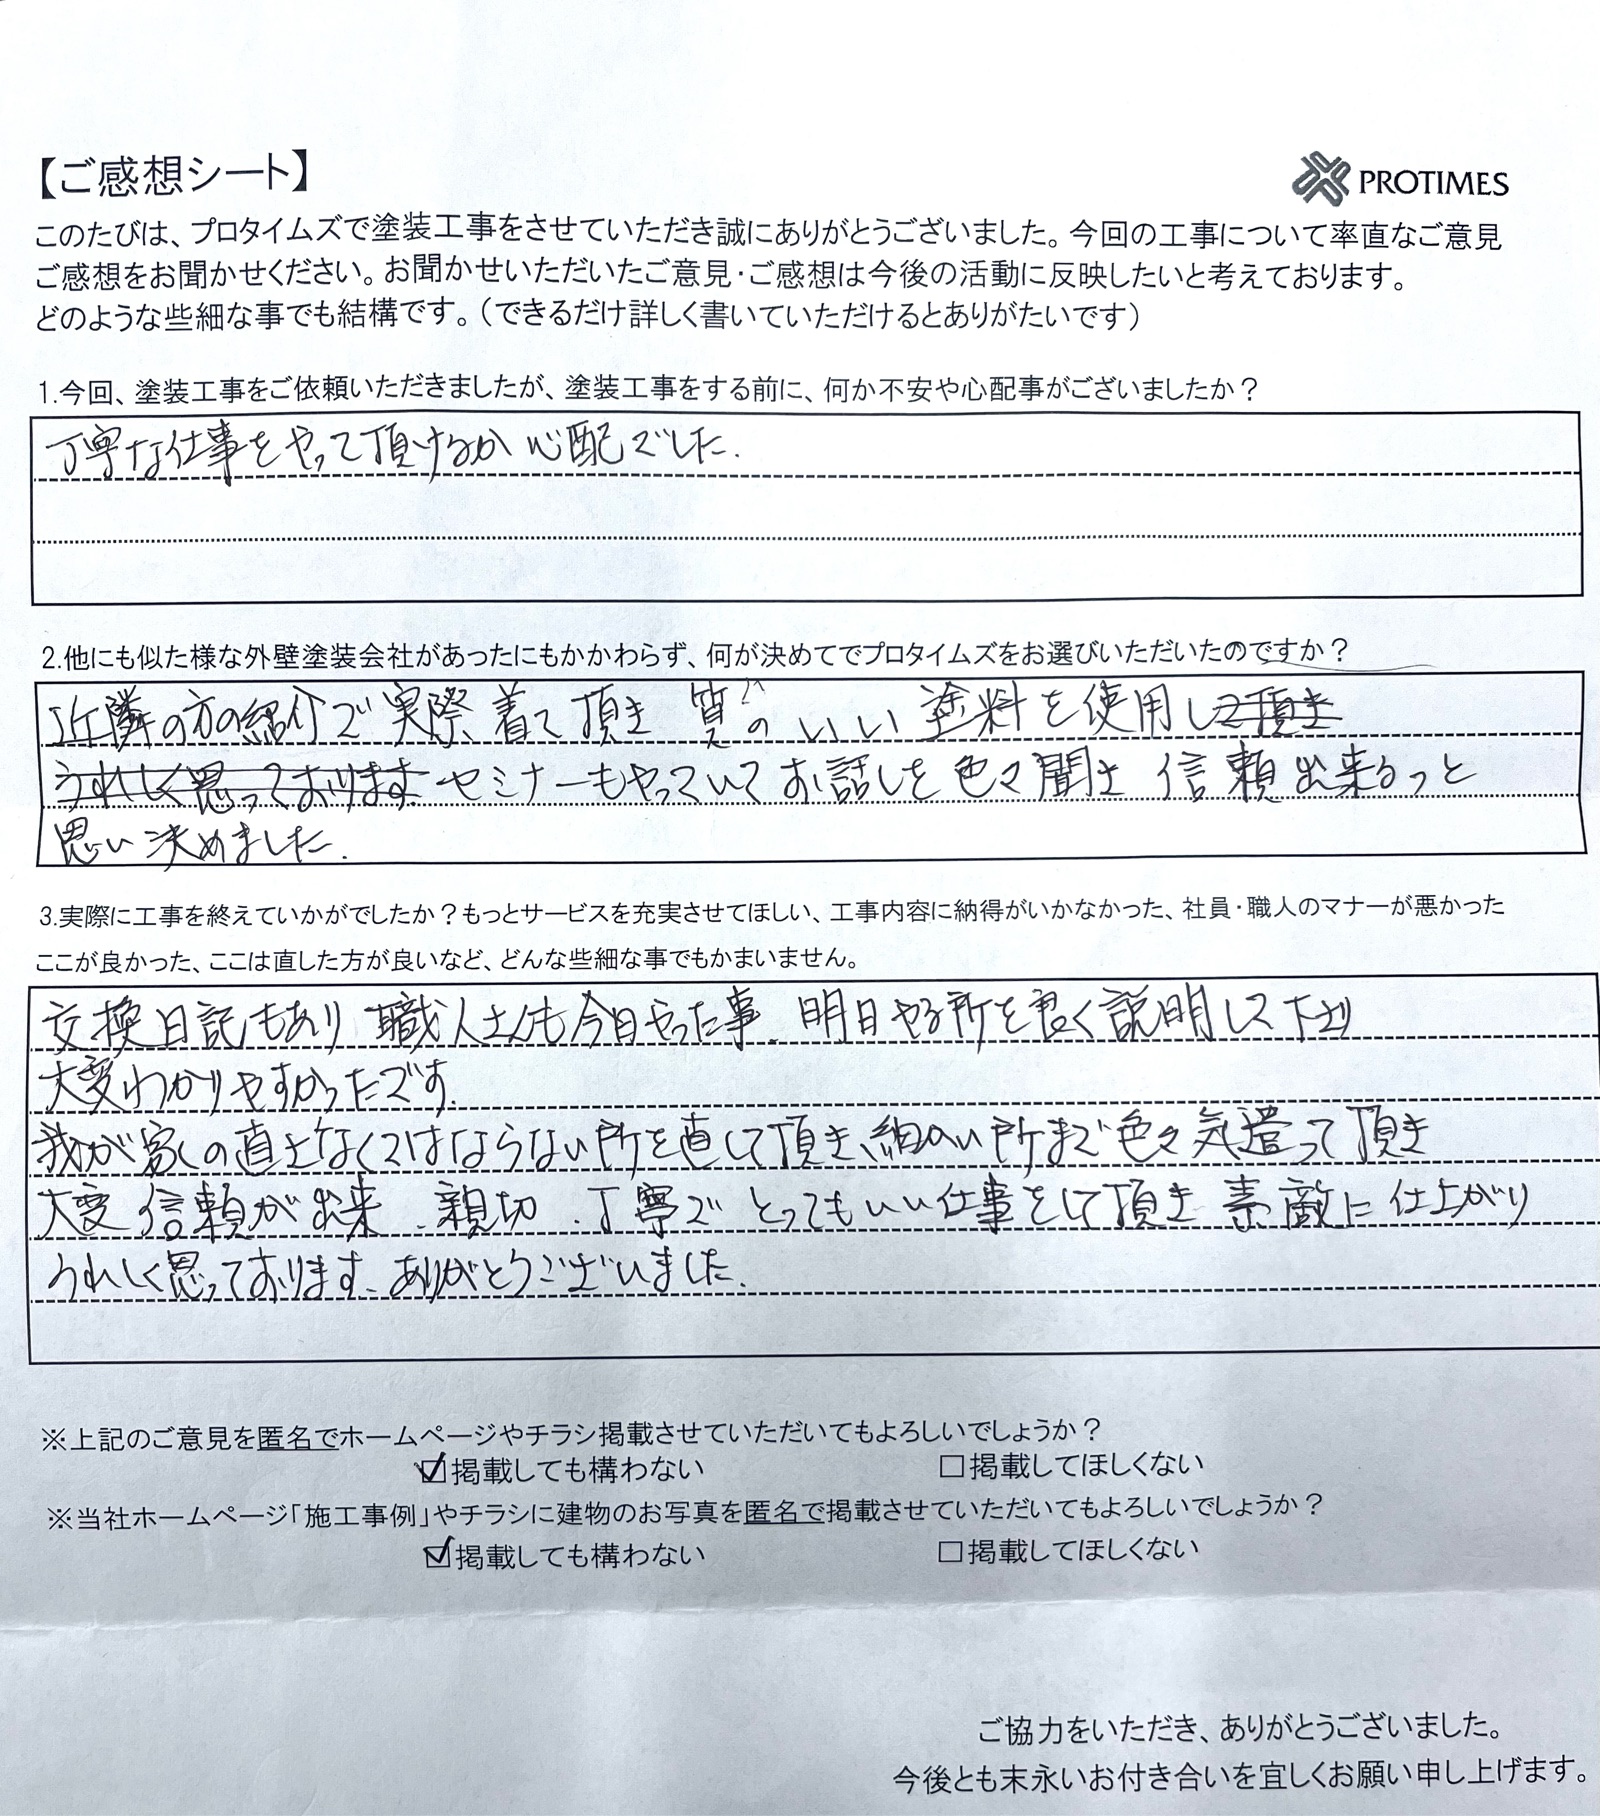 【ご感想シート】
PROTIMES
このたびは、プロタイムズで塗装工事をさせていただき誠にありがとうございました。今回の工事について率直なご意見
ご感想をお聞かせください。お聞かせいただいたご意見・ご感想は今後の活動に反映したいと考えております。
どのような些細な事でも結構です。（できるだけ詳しく書いていただけるとありがたいです）
1.今回、塗装工事をご依頼いただきましたが、塗装工事をする前に、何か不安や心配事がございましたか？
丁寧な仕事をやって頂けるか心配でした.
2.他にも似た様な外壁塗装会社があったにもかかわらず、何が決めてでプロタイムズをお選びいただいたのですか？
近隣の方の紹介で実際、着て頂き 質のいい塗料を使用して頂き
うれしく思っております. セミナーもやっていてお話しを色々聞き 信頼出来るっと
思い決めました.
3.実際に工事を終えていかがでしたか？もっとサービスを充実させてほしい、工事内容に納得がいかなかった、社員・職人のマナーが悪かった
ここが良かった、ここは直した方が良いなど、どんな些細な事でもかまいません。
交換日記もあり 職人さんも今日やった事. 明日やる所を良く説明して下さり
大変わかりやすかったです.
我が家の直さなくてはならない所を直して頂き、細かい所まで色々気遣って頂き
大変信頼が出来、親切、丁寧で とってもいい仕事をして頂き 素敵に仕上がり
うれしく思っております、ありがとうございました.
※上記のご意見を匿名でホームページやチラシ掲載させていただいてもよろしいでしょうか？
☑掲載しても構わない □掲載してほしくない
※当社ホームページ「施工事例」やチラシに建物のお写真を匿名で掲載させていただいてもよろしいでしょうか？
☑掲載しても構わない □掲載してほしくない
ご協力をいただき、ありがとうございました。
今後とも末永いお付き合いを宜しくお願い申し上げます。